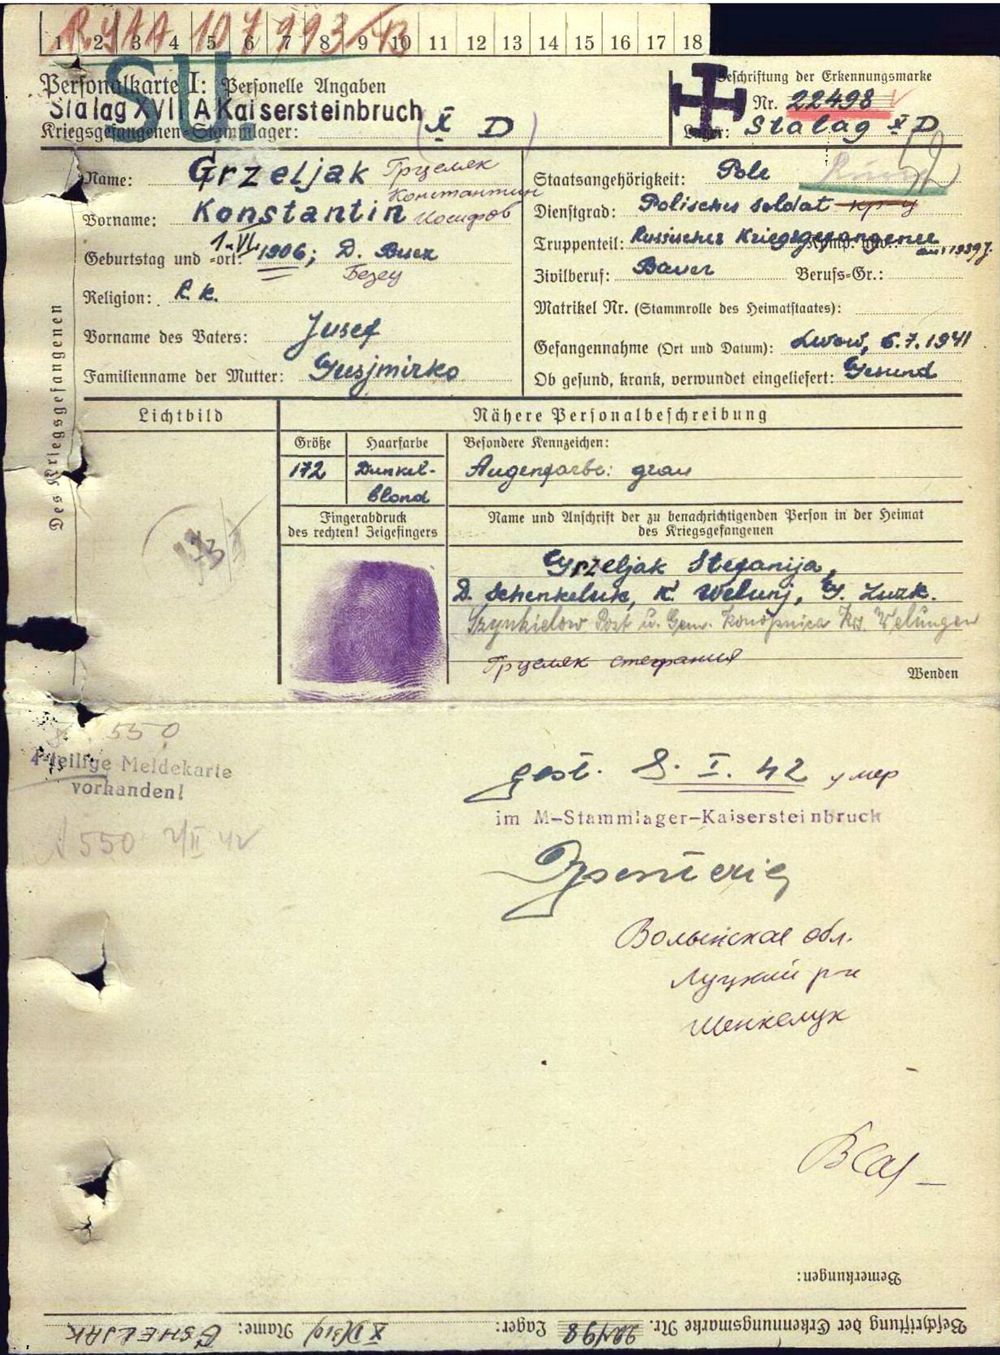 1 2 3 4 5 6 7 8 9 10 11 12 13 14 15 16 17 18
SU
Personalkarte I: Personelle Angaben
Stalag XVII A Kaisersteinbruch
Kriegsgefangenen-Stammlager: (X D)
Beschriftung der Erkennungsmarke
Nr. 22498
Lager: Stalag X D
Des Kriegsgefangenen
Name: Grzeljak Грцеляк
Константин
Vorname: Konstantin Иосифов
Geburtstag und -ort: 1.VI. 1906; D. Besez
Безец
Religion: R. K.
Vorname des Vaters: Jusef
Familienname der Mutter: Gusjmirko
Staatsangehörigkeit: Pole
Dienstgrad: Polischer Soldat кр-ц
Truppenteil: Russischer Kriegsgefangener aus 1939 J.
Zivilberuf: Bauer Berufs-Gr.:
Matrikel Nr. (Stammrolle des Heimatstaates):
Gefangennahme (Ort und Datum): Lwow, 6.7.1941
Ob gesund, krank, verwundet eingeliefert: Gesund
Lichtbild
Nähere Personalbeschreibung
Größe Haarfarbe Besondere Kennzeichen:
172 Dunkel-
blond
Augenfarbe: grau
Fingerabdruck
des rechten! Zeigefingers
Name und Anschrift der zu benachrichtigenden Person in der Heimat
des Kriegsgefangenen
Grzeljak Stefanija,
D. Schenkeluk, K. Welunj, G. Luzk.
Szynkielow Post u. Gem. Konopnica Krs. Welungen
Грцеляк стефания
Wenden
550
4-teilige Meldekarte
vorhanden!
A 550 2/II 42
gest. 8. I. 42 умер
im M-Stammlager-Kaisersteinbruck
Волынская обл.
Луцкий р-н
Шенкелук
Bemerkungen:
Beschriftung der Erkennungsmarke Nr. 22498 Lager: X D (310) Name: